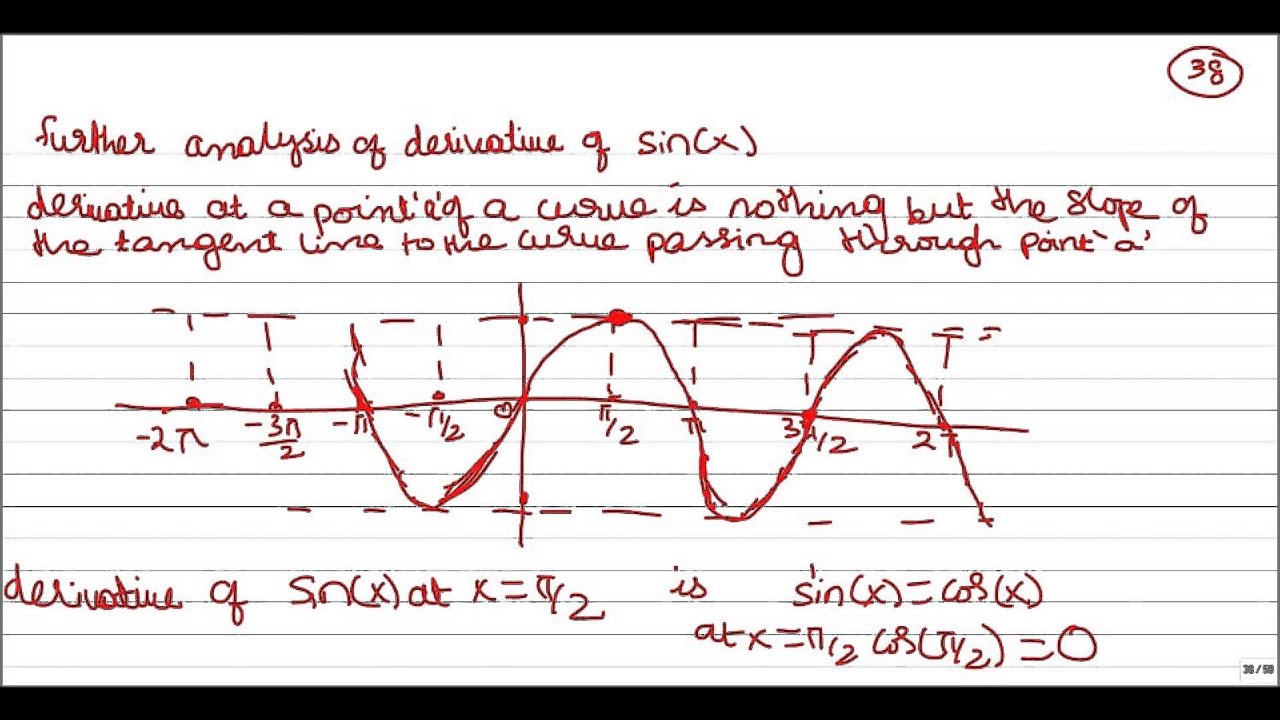 38
further analysis of derivative of sin(x)
derivative at a point 'a' of a curve is nothing but the slope of
the tangent line to the curve passing through point 'a'
-2π -3π/2 -π -π/2 0 π/2 π 3π/2 2π
derivative of sin(x) at x = π/2 is sin'(x) = cos(x)
at x = π/2 cos(π/2) = 0
38 / 50